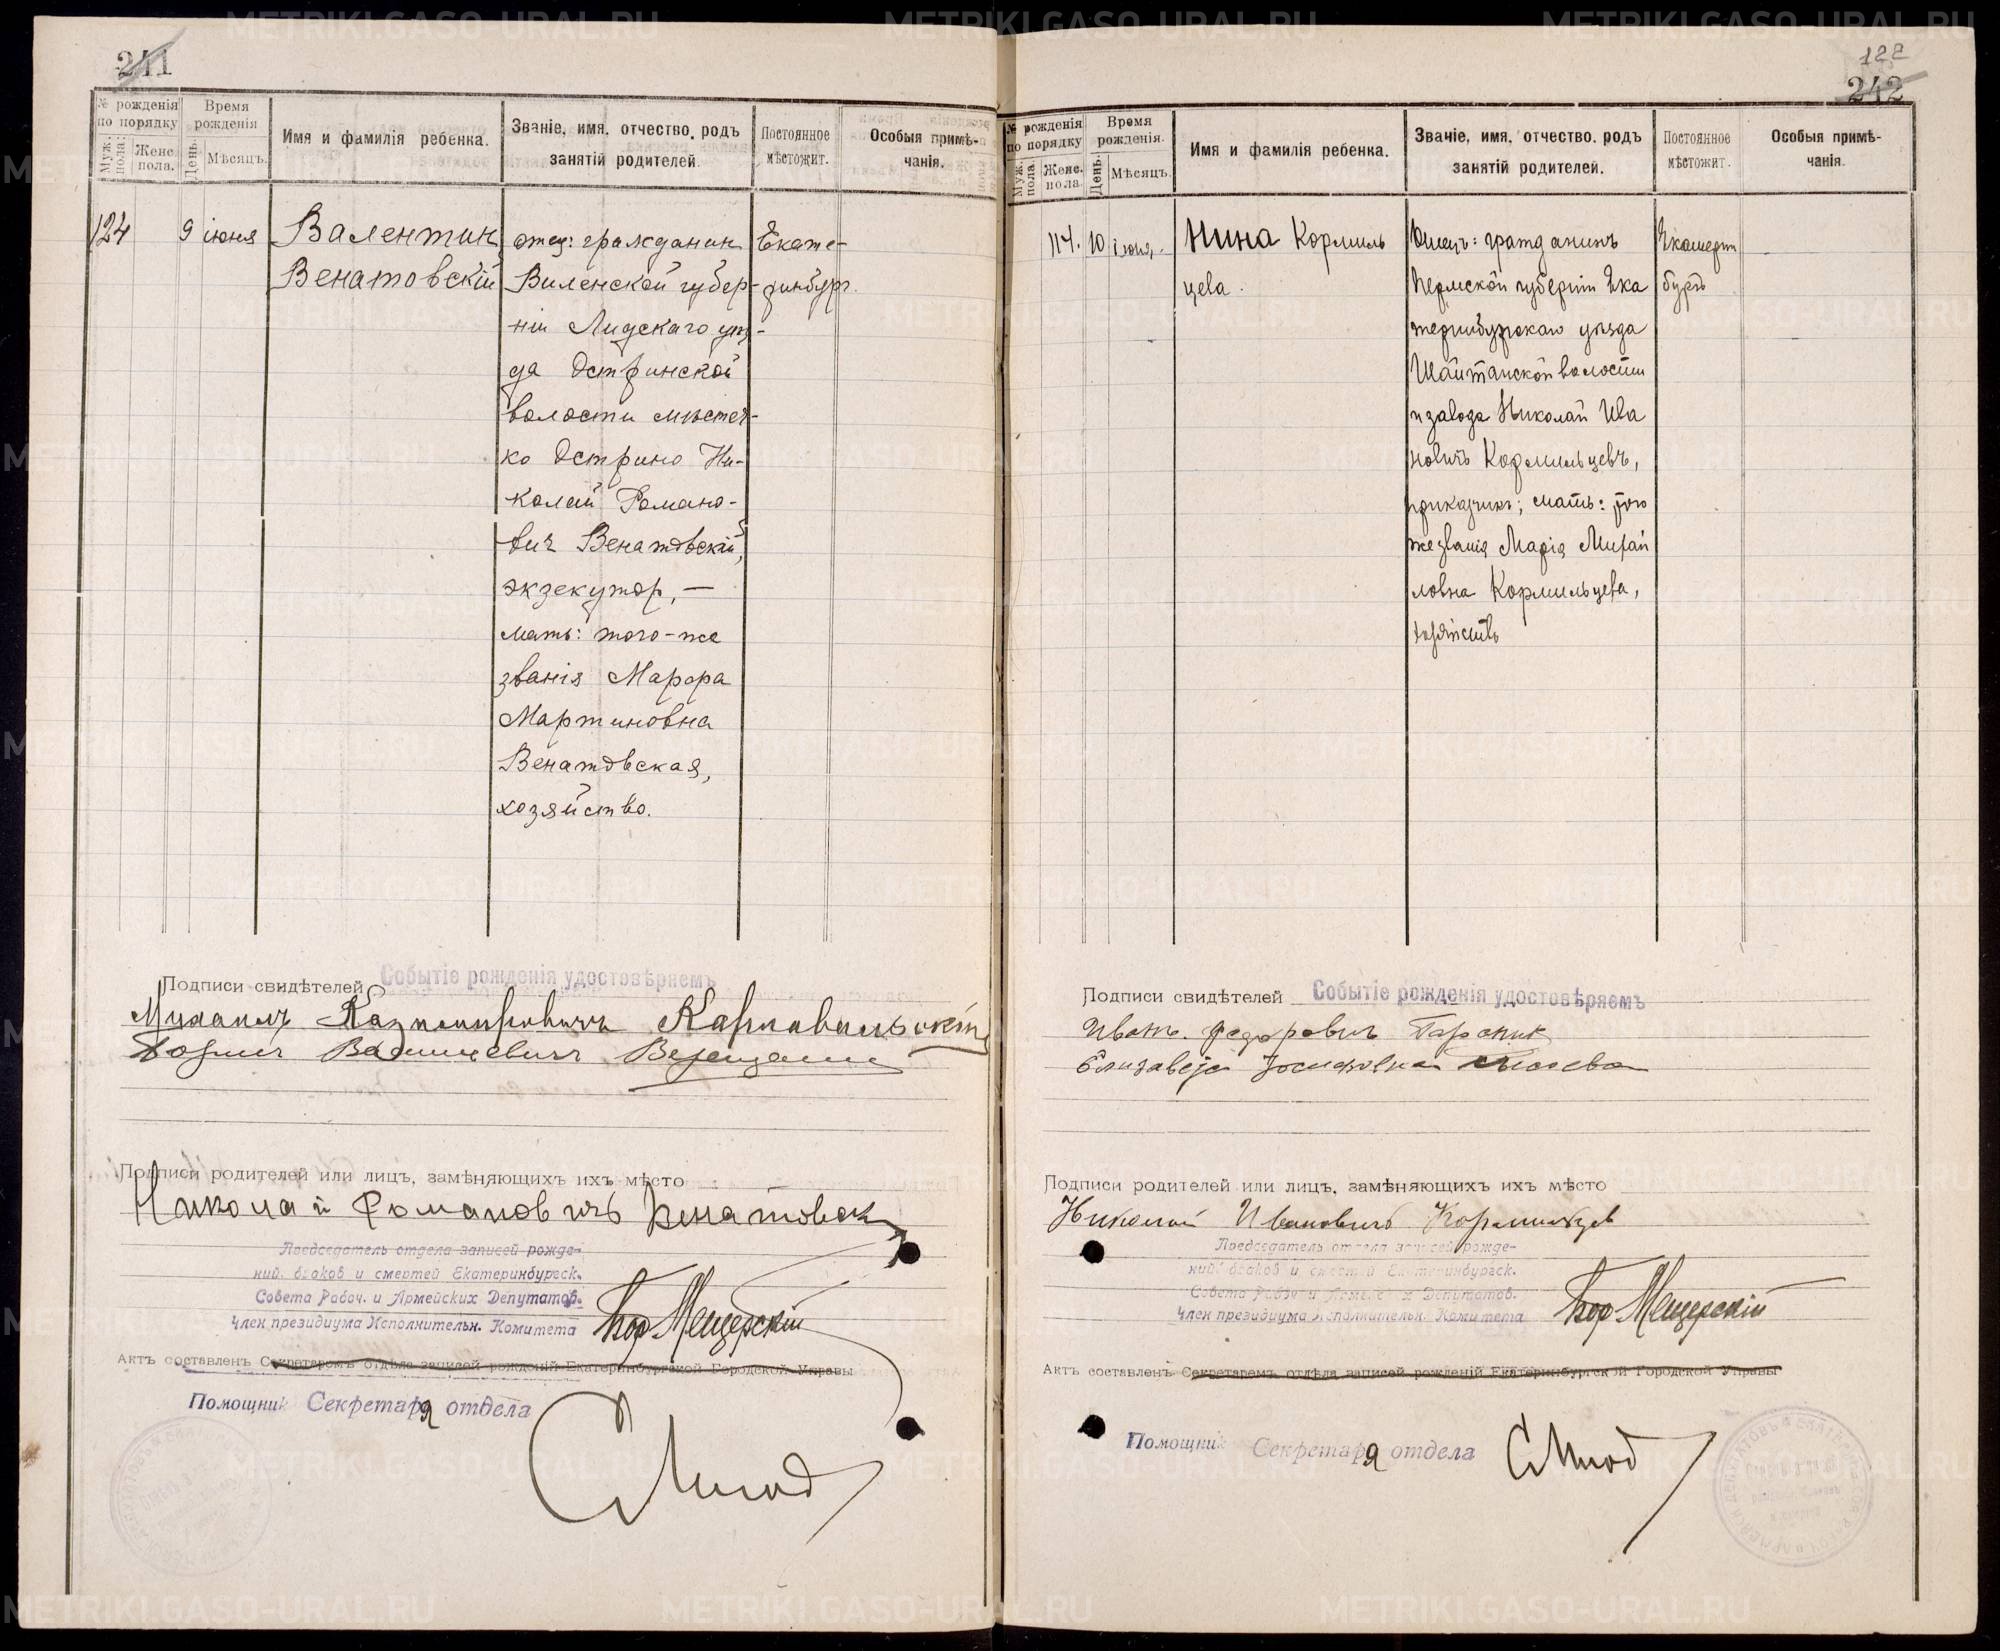 241
№ рожденія по порядку
Время рожденія
Муж. пола.
Женс. пола.
День.
Мѣсяцъ.
Имя и фамилія ребенка.
Званіе, имя, отчество, родъ занятій родителей.
Постоянное мѣстожит.
Особыя примѣчанія.
124
9 іюня
Валентин
Венатовскій
отец: гражданин
Виленской губер-
ніи Лидскаго уѣз-
да Остринской
волости мѣстеч-
ко Острино Ни-
колай Романо-
вич Венатовскій,
экзекутор, —
мать: того-же
званія
Мартиновна
Венатовская,
хозяйство.
Екате-
ринбург.
Подписи свидѣтелей
Событіе рожденія удостовѣряемъ
Михаилъ Казимировичъ
Подписи родителей или лицъ, замѣняющихъ ихъ мѣсто
Николай Романовичъ Венатовск
Председатель отдела записей рожде-
ний, браков и смертей Екатеринбургск.
Совета Рабоч. и Армейских Депутатов.
Член президиума Исполнительн. Комитета
Мещерскій
Актъ составленъ Секретаремъ отдѣла записей рожденій Екатеринбургской Городской Управы
Помощник Секретаря отдела
122
242
№ рожденія по порядку
Время рожденія.
Муж. пола.
Женс. пола.
День.
Мѣсяцъ.
Имя и фамилія ребенка.
Званіе, имя, отчество, родъ занятій родителей.
Постоянное мѣстожит.
Особыя примѣчанія.
114. 10
Нина Кормиль
цева.
Отецъ: гражданинъ
Пермской губерніи Ека
теринбургскаго уѣзда
Шайтанской волости
и завода Николай Ива
новичъ Кормильцевъ,
приказчикъ; мать: того
же званія Марія Михай
ловна Кормильцева,
хозяйство
Екатерин
бургъ
Подписи свидѣтелей
Событіе рожденія удостовѣряемъ
Иванъ Федорович
Елизавета Іосифовна
Подписи родителей или лицъ, замѣняющихъ ихъ мѣсто
Николай Ивановичъ Кормильцев
Председатель отдела записей рожде-
ний, браков и смертей Екатеринбургск.
Совета Рабоч. и Армейских Депутатов.
Член президиума Исполнительн. Комитета
Мещерскій
Актъ составленъ Секретаремъ отдѣла записей рожденій Екатеринбургской Городской Управы
Помощник Секретаря отдела
METRIKI.GASO-URAL.RU